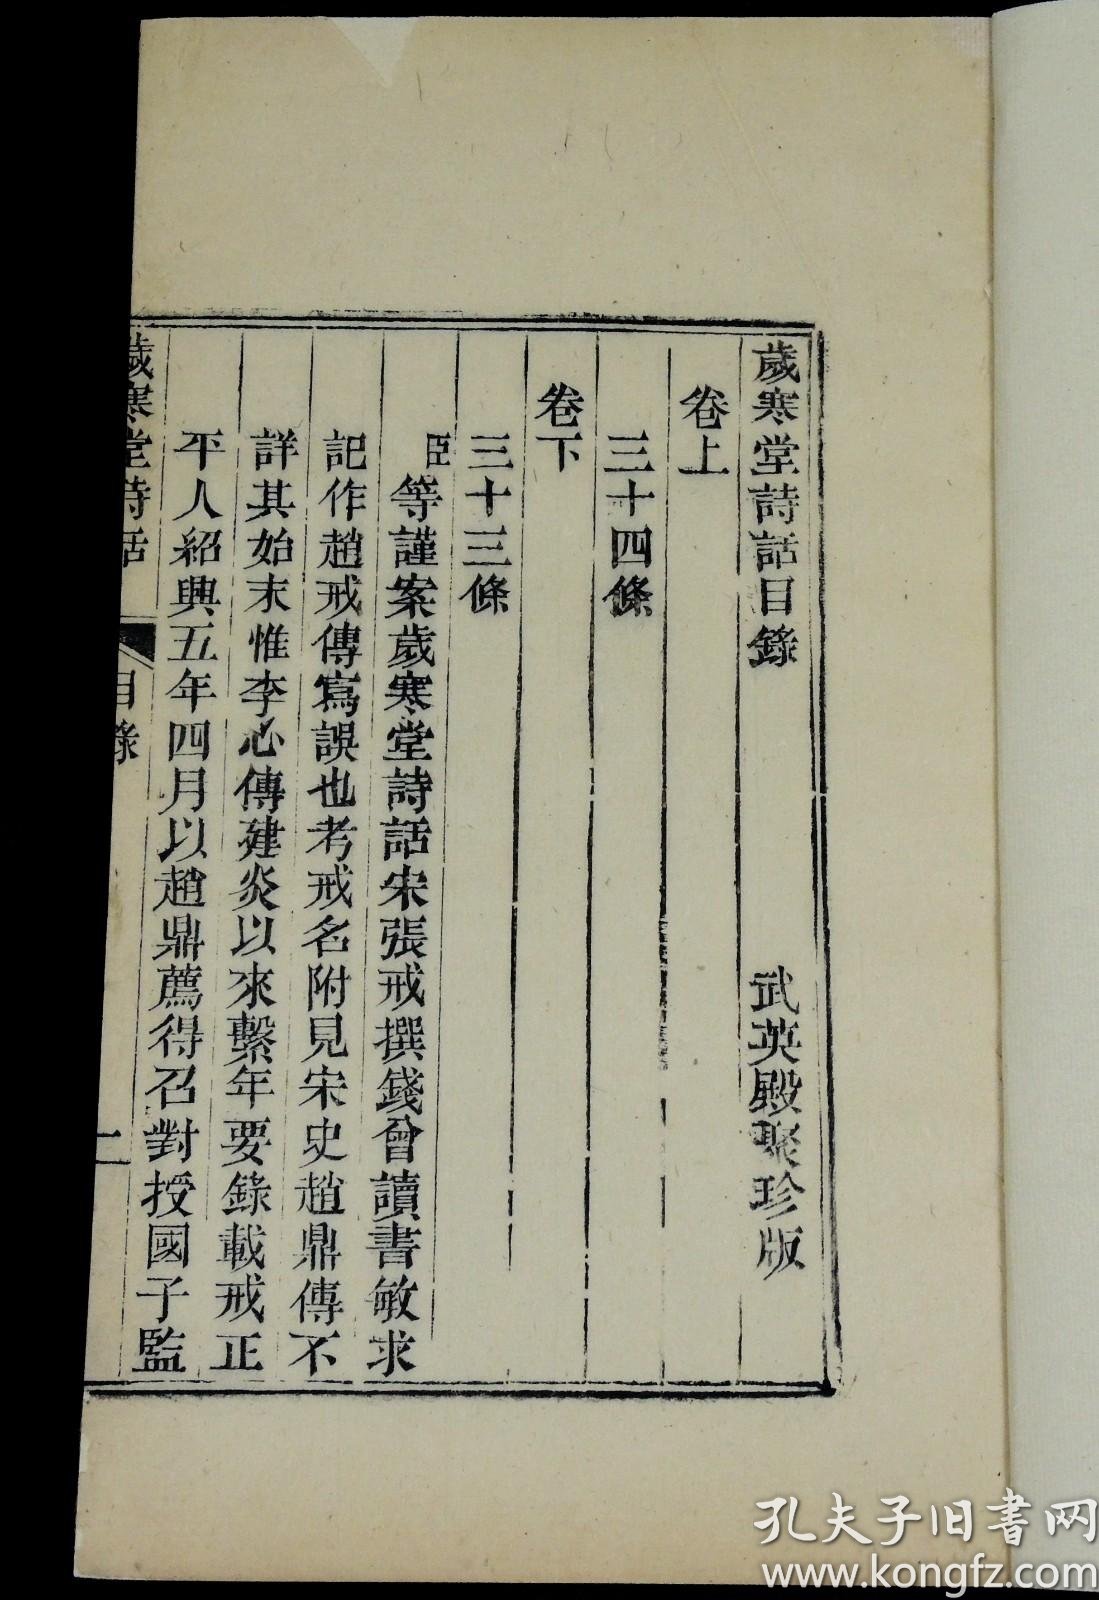 歲寒堂詩話目錄 武英殿聚珍版
卷上
三十四條
卷下
三十三條
臣等謹案歲寒堂詩話宋張戒撰錢曾讀書敏求
記作趙戒傳寫誤也考戒名附見宋史趙鼎傳不
詳其始末惟李心傳建炎以來繫年要錄載戒正
平人紹興五年四月以趙鼎薦得召對授國子監
歲寒堂詩話 目錄 一
孔夫子旧书网
www.kongfz.com